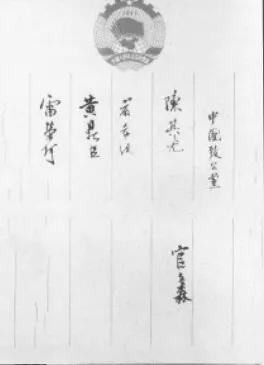 中國致公黨
陳其尤
官文森
黃鼎臣
雷榮珂